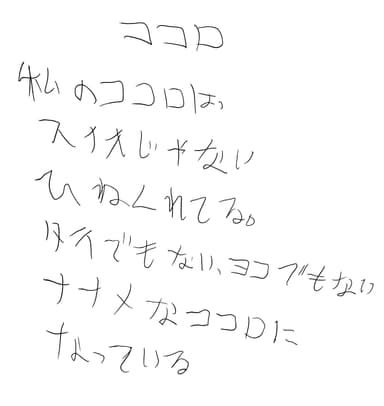 ココロ
私のココロは、
スナオじゃない
ひねくれてる。
タテでもない、ヨコでもない
ナナメなココロに
なっている